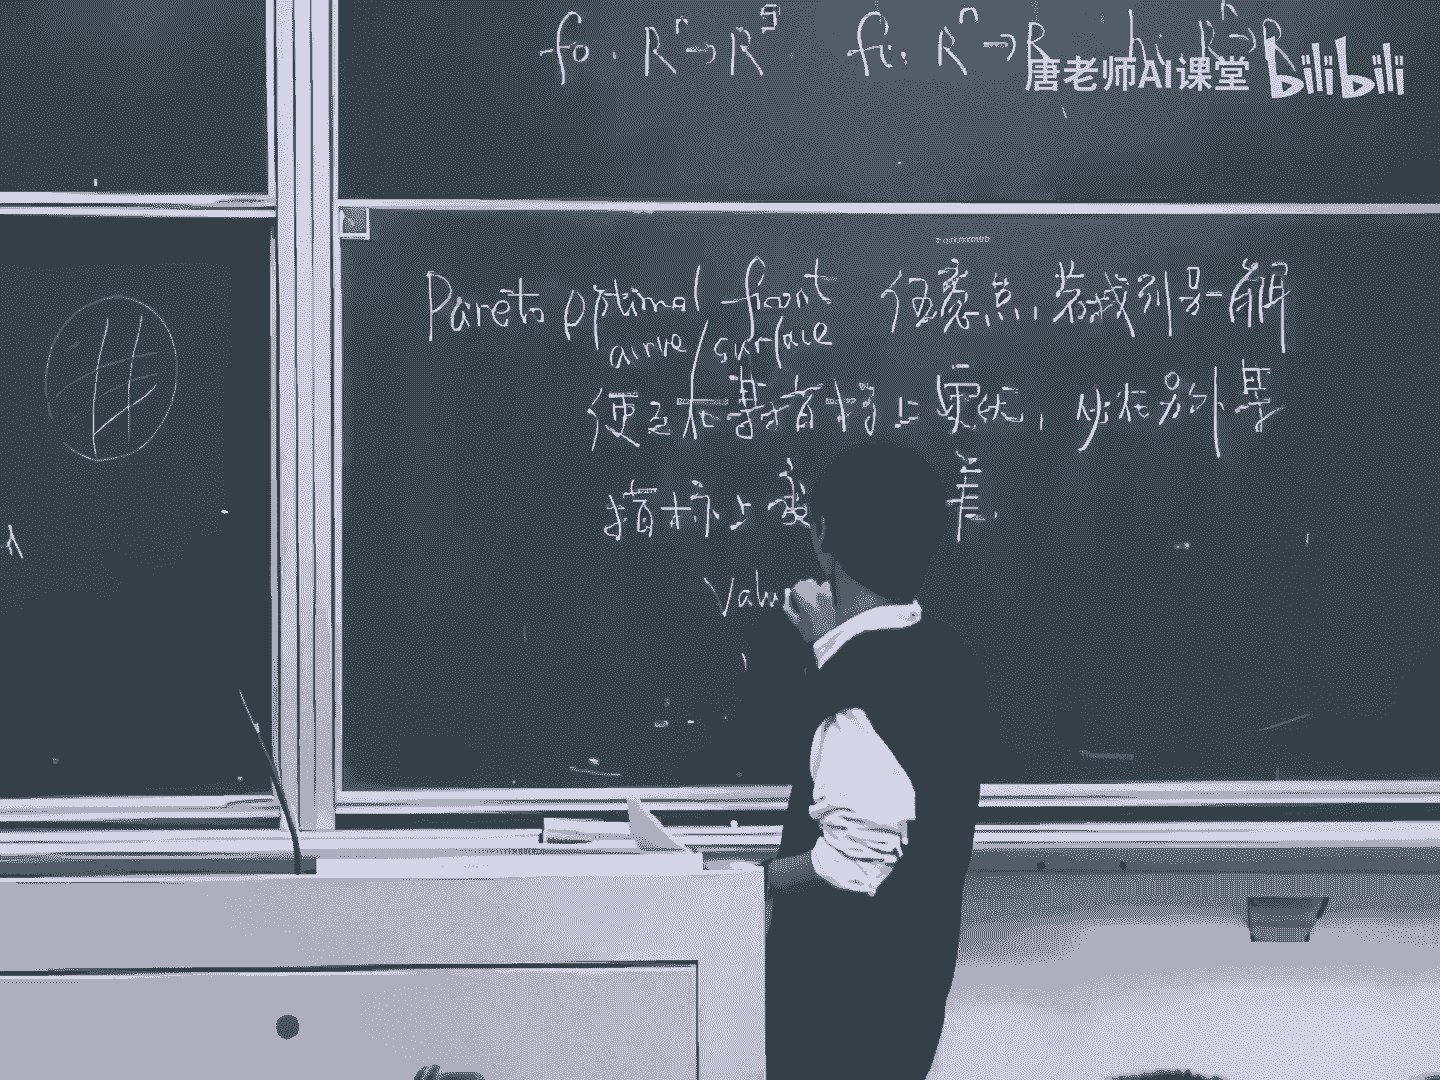 f0: R^n→R^q. fi: R^n→R hi: R^n→R
唐老师AI课堂 bilibili
Pareto optimal front 任意点,若找到另一解
curve/surface
使之在某指标上更优,必在另外某
指标上变 差.
Valu